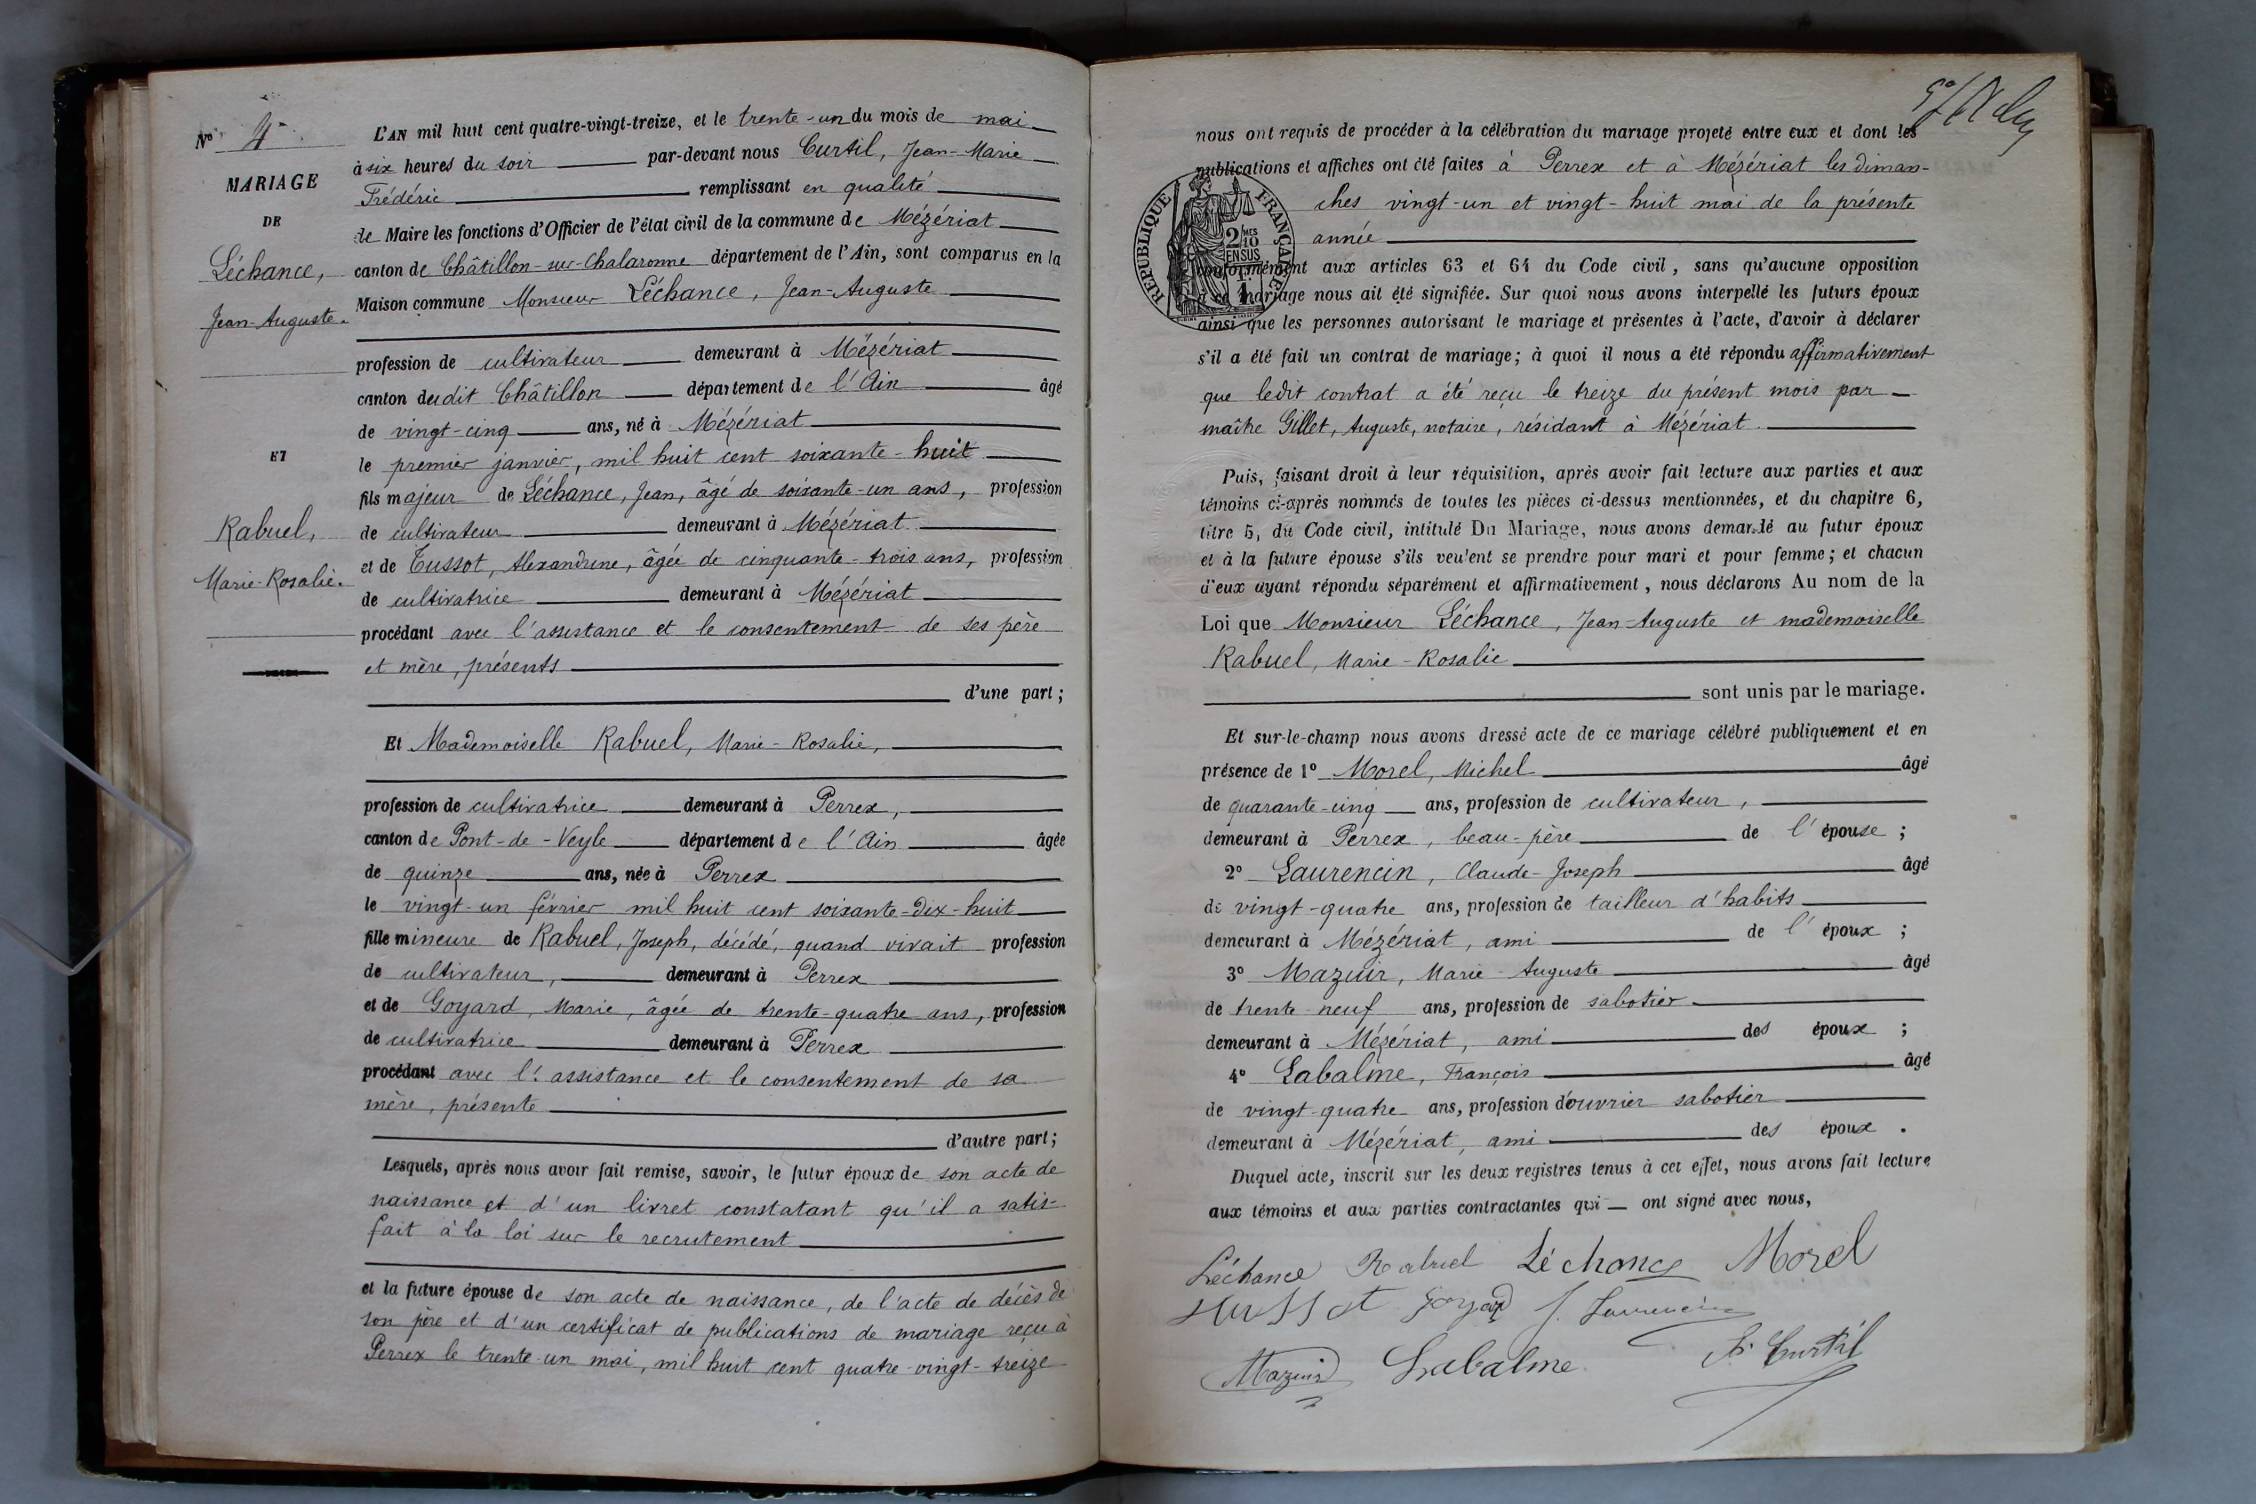 N° 4
MARIAGE
DE
Léchance,
Jean-Auguste.
ET
Rabuel,
Marie-Rosalie.
L'AN mil huit cent quatre-vingt-treize, et le trente-un du mois de mai
à six heures du soir par-devant nous Curtil, Jean-Marie
Frédéric remplissant en qualité
de Maire les fonctions d'Officier de l'état civil de la commune de Mézériat
canton de Châtillon-sur-Chalaronne département de l'Ain, sont comparus en la
Maison commune Monsieur Léchance, Jean-Auguste
profession de cultivateur demeurant à Mézériat
canton dudit Châtillon département de l'Ain âgé
de vingt-cinq ans, né à Mézériat
le premier janvier, mil huit cent soixante-huit
fils majeur de Léchance, Jean, âgé de soixante-un ans, profession
de cultivateur demeurant à Mézériat
et de Tussot, Alexandrine, âgée de cinquante-trois ans, profession
de cultivatrice demeurant à Mézériat
procédant avec l'assistance et le consentement de ses père
et mère, présents
d'une part;
Et Mademoiselle Rabuel, Marie-Rosalie,
profession de cultivatrice demeurant à Perrex,
canton de Pont-de-Veyle département de l'Ain âgée
de quinze ans, née à Perrex
le vingt-un février mil huit cent soixante-dix-huit
fille mineure de Rabuel, Joseph, décédé, quand vivait profession
de cultivateur, demeurant à Perrex
et de Goyard, Marie, âgée de trente-quatre ans, profession
de cultivatrice demeurant à Perrex
procédant avec l'assistance et le consentement de sa
mère, présente
d'autre part;
Lesquels, après nous avoir fait remise, savoir, le futur époux de son acte de
naissance et d'un livret constatant qu'il a satis-
fait à la loi sur le recrutement
et la future épouse de son acte de naissance, de l'acte de décès de
son père et d'un certificat de publications de mariage reçu à
Perrex le trente-un mai, mil huit cent quatre-vingt-treize
nous ont requis de procéder à la célébration du mariage projeté entre eux et dont les
publications et affiches ont été faites à Perrex et à Mézériat les diman-
ches vingt-un et vingt-huit mai de la présente
année
RÉPUBLIQUE FRANÇAISE
2 MES
10
EN SUS
1F
conformément aux articles 63 et 64 du Code civil, sans qu'aucune opposition
à ce mariage nous ait été signifiée. Sur quoi nous avons interpellé les futurs époux
ainsi que les personnes autorisant le mariage et présentes à l'acte, d'avoir à déclarer
s'il a été fait un contrat de mariage; à quoi il nous a été répondu affirmativement
que ledit contrat a été reçu le treize du présent mois par
maître Gillet, Auguste, notaire, résidant à Mézériat.
Puis, faisant droit à leur réquisition, après avoir fait lecture aux parties et aux
témoins ci-après nommés de toutes les pièces ci-dessus mentionnées, et du chapitre 6,
titre 5, du Code civil, intitulé Du Mariage, nous avons demandé au futur époux
et à la future épouse s'ils veulent se prendre pour mari et pour femme; et chacun
d'eux ayant répondu séparément et affirmativement, nous déclarons Au nom de la
Loi que Monsieur Léchance, Jean-Auguste et mademoiselle
Rabuel, Marie-Rosalie
sont unis par le mariage.
Et sur-le-champ nous avons dressé acte de ce mariage célébré publiquement et en
présence de 1° Morel, Michel âgé
de quarante-cinq ans, profession de cultivateur,
demeurant à Perrex, beau-père de l'épouse;
2° Laurencin, Claude-Joseph âgé
de vingt-quatre ans, profession de tailleur d'habits
demeurant à Mézériat, ami de l'époux;
3° Mazuir, Marie-Auguste âgé
de trente-neuf ans, profession de sabotier
demeurant à Mézériat, ami des époux;
4° Labalme, François âgé
de vingt-quatre ans, profession d'ouvrier sabotier
demeurant à Mézériat, ami des époux.
Duquel acte, inscrit sur les deux registres tenus à cet effet, nous avons fait lecture
aux témoins et aux parties contractantes qui ont signé avec nous,
Léchance Rabuel Léchance Morel
Tussot Goyard J. Laurencin
Mazuir Labalme F. Curtil